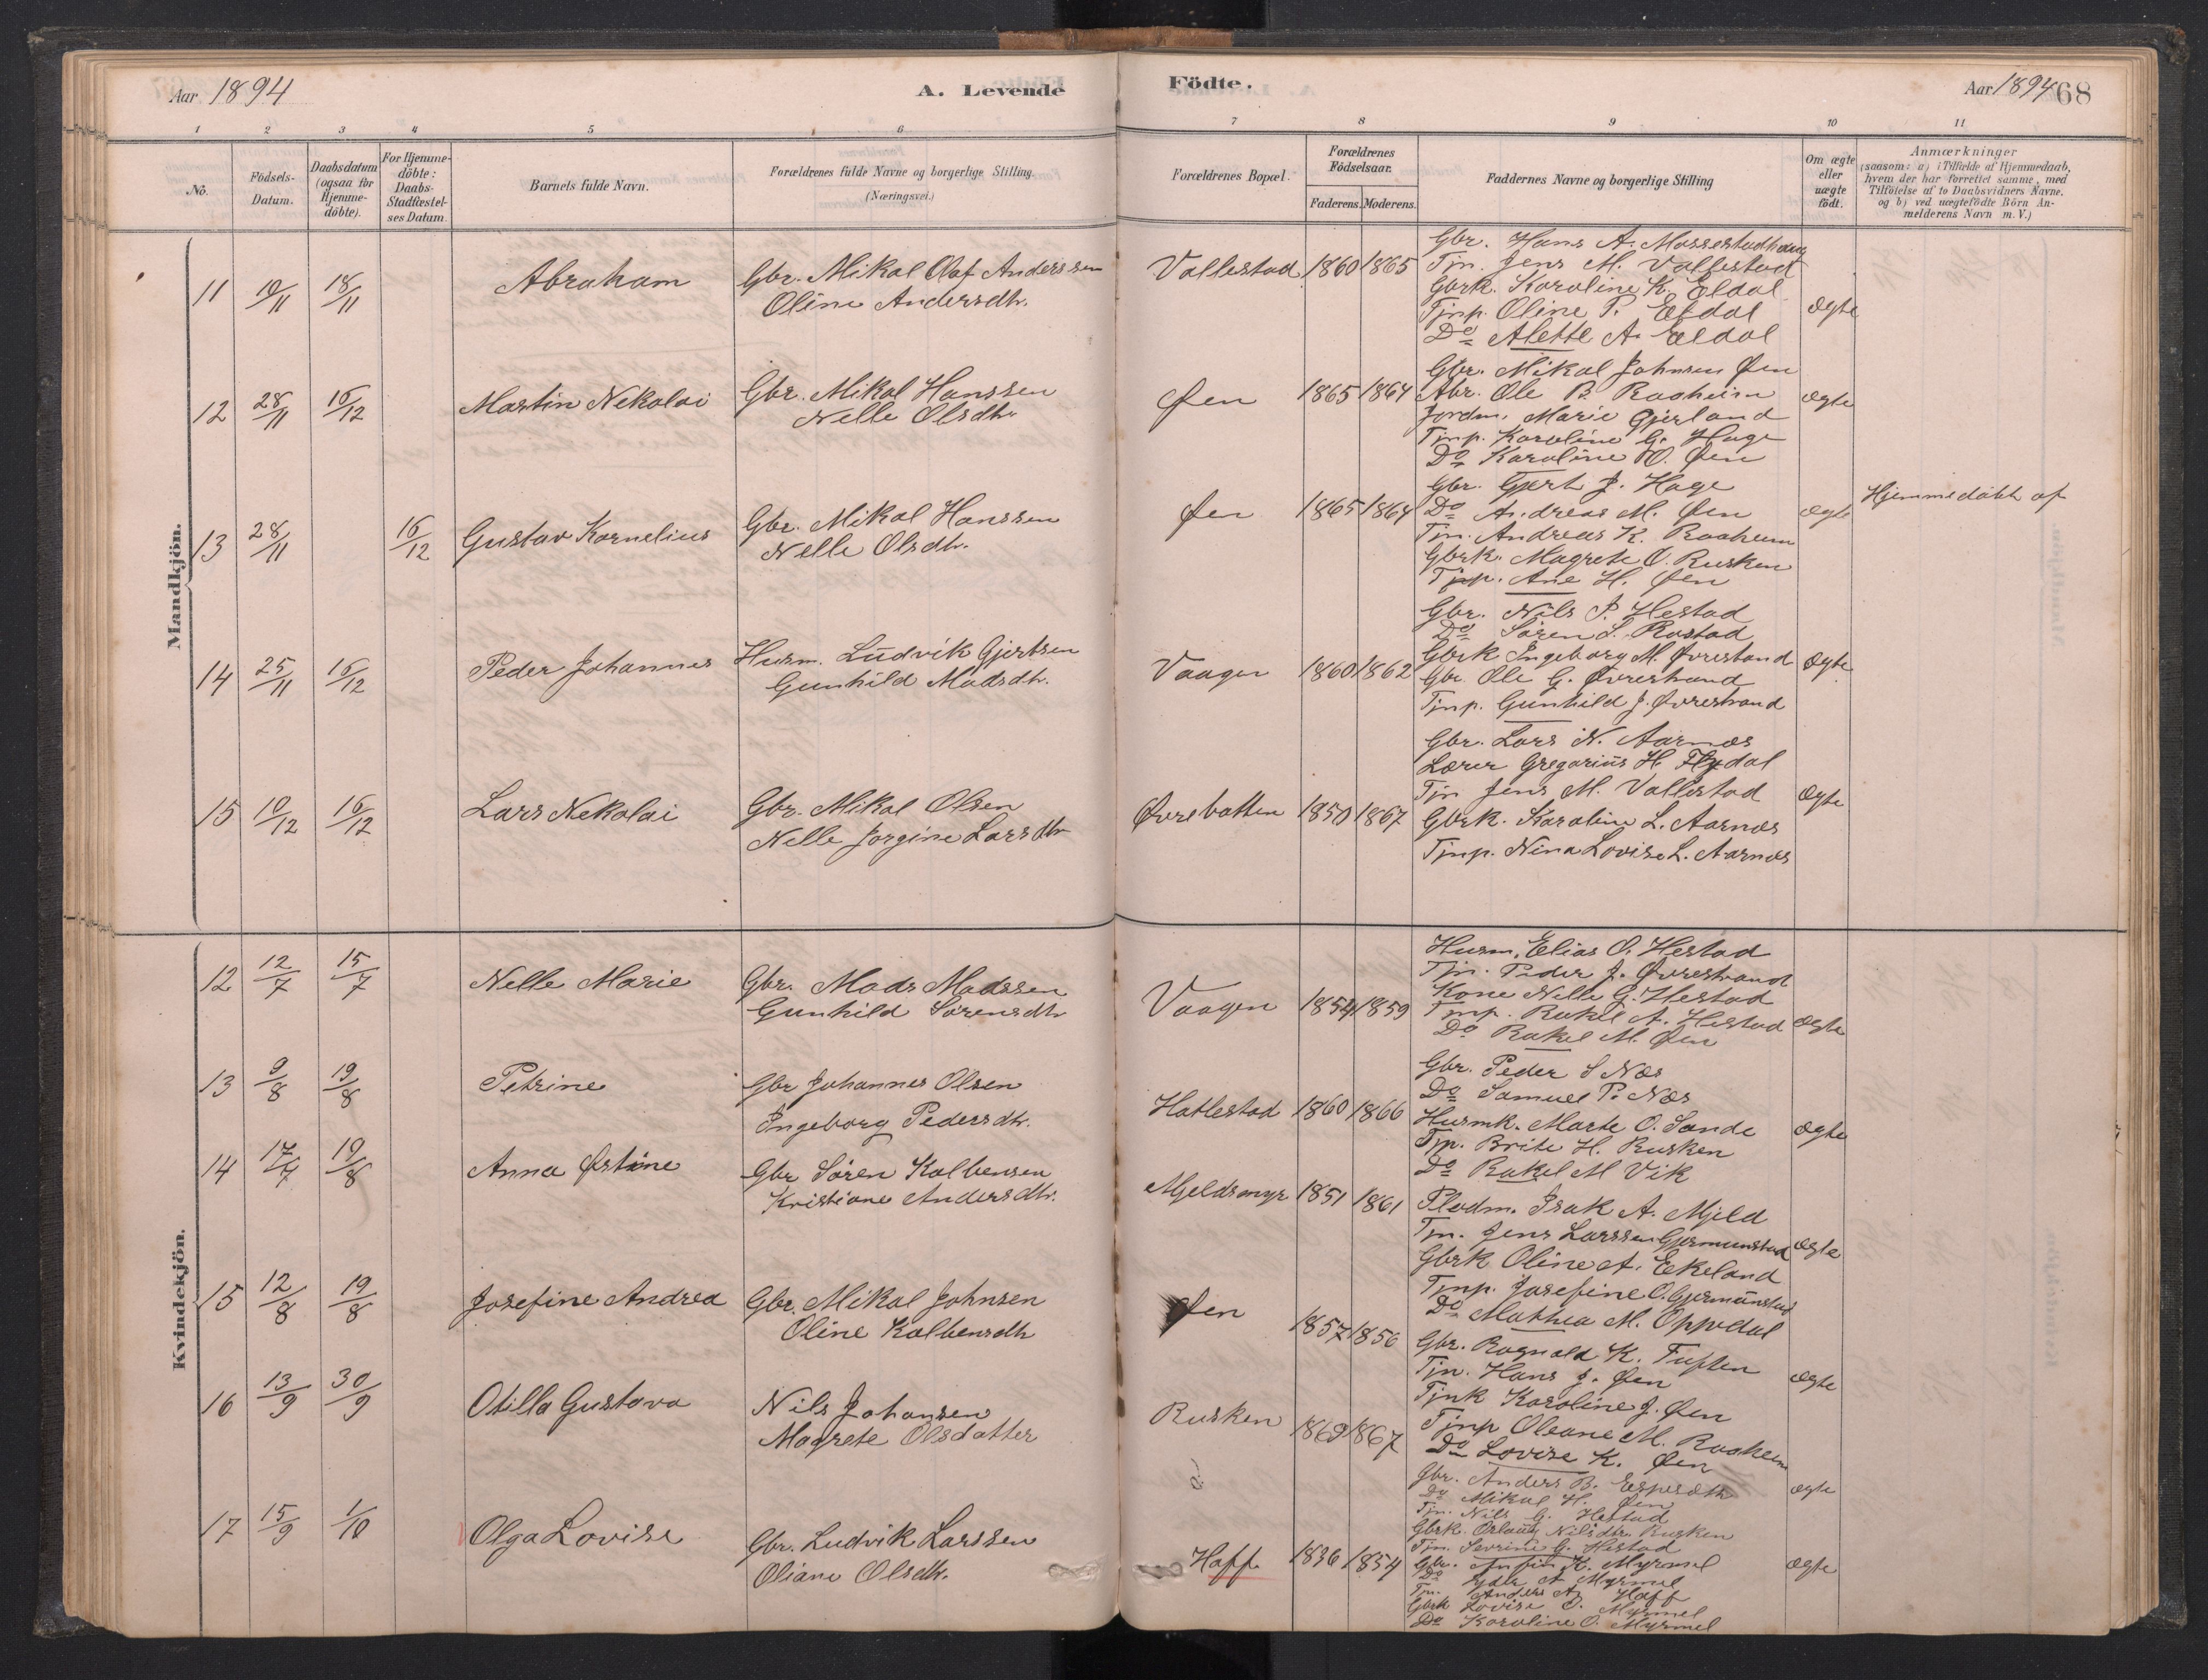 Aar 1894
A. Levende
Födte.
Aar 1894 68
1 2 3 4 5 6 7 8 9 10 11
No.
Födsels-Datum.
Daabsdatum (ogsaa for Hjemme-döbte).
For Hjemme-döbte: Daabs-Stadfæstel-ses Datum.
Barnets fulde Navn.
Forældrenes fulde Navne og borgerlige Stilling (Næringsvei.)
Forældrenes Bopæl.
Forældrenes Födselsaar.
Faderens. Moderens.
Faddernes Navne og borgerlige Stilling
Om ægte eller uægte födt.
Anmærkninger
(saasom: a) i Tilfælde af Hjemmedaab,
hvem der har forrettet samme, med
Tilföielse af to Daabsvidners Navne.
og b) ved uægtefödte Börn An-
melderens Navn m. V.)
Mandkjön.
11 10/11 18/11 Abraham
Gbr. Mikal Olaf Anderssen
Oline Andersdtr.
Vallestad 1860 1865
Gbr. Hans A. Massestadhaug
Tjn. Jens M. Vallestad
Gbrk. Karoline K. Eldal
Tjnp. Oline P. Eldal
Do Alette A. Eldal
Ægte
12 28/11 16/12 Martin Nekolai
Gbr. Mikal Hanssen
Nelle Olsdtr.
Øen 1865 1864
Gbr. Mikal Johnsen Øen
Abr. Ole B. Raaheim
Jordm. Marie Gjerland
Tjnp. Karoline G. Hage
Do Karoline O. Øen
Ægte
13 28/11 16/12 Gustav Kornelius
Gbr. Mikal Hanssen
Nelle Olsdtr.
Øen 1865 1864
Gbr. Gjert J. Hage
Do Andreas M. Øen
Tjn. Andreas K. Raaheim
Gbrk. Magrete O. Rusken
Tjnp. Ane H. Øen
Ægte
Hjemmedöbt af
14 25/11 16/12 Peder Johannes
Husm. Ludvik Gjertsen
Gunhild Madsdtr.
Vaagen 1860 1862
Gbr. Nils P. Hestad
Do Sören S. Rastad
Gbrk Ingeborg M. Øvrestrand
Gbr. Ole G. Øvrestrand
Tjnp. Gunhild J. Øvrestrand
Ægte
15 10/12 16/12 Lars Nekolai
Gbr. Mikal Olsen
Nelle Jorgine Larsdtr
Øvrebotten 1850 1867
Gbr. Lars N. Aarnæs
Lærer Gregarius H. Flydal
Tjn Jens M. Vallestad
Gbrk. Karoline L. Aarnæs
Tjnp. Nina Lovise L. Aarnæs
Ægte
Kvindekjön.
12 12/7 15/7 Nelle Marie
Gbr. Mads Madssen
Gunhild Sørensdtr
Vaagen 1854 1859
Husm. Elias O. Hestad
Tjn. Peder J. Øvrestrand
Kone Nelle G. Hestad
Tjnp. Rakel A. Hestad
Do Rakel M. Øen
Ægte
13 9/8 19/8 Petrine
Gbr Johannes Olsen
Ingeborg Pedersdtr.
Hatlestad 1860 1866
Gbr. Peder S Næs
Do Samuel P. Næs
Husmk. Marte O. Sande
Tjp. Brite H. Rusken
Do Rakel M Vik
Ægte
14 17/7 19/8 Anna Østine
Gbr Sören Kolbensen
Kristiane Andersdtr.
Mjeldsmyr 1851 1861
Pladm. Isak A. Mjeld
Tjn. Jens Larssen Gjermunstad
Gbrk Oline A. Ekeland
Tjnp. Josefine O. Gjermunstad
Do Mathea M. Oppedal
Ægte
15 12/8 19/8 Josefine Andrea
Gbr. Mikal Johnsen
Oline Kolbensdtr
Øen 1857 1856
Gbr. Ragnald K. Tuften
Tjn. Hans J. Øen
Tjnk Karoline J. Øen
Tjnp Oleane M. Raaheim
Do Lovise K. Øen
Ægte
16 13/9 30/9 Otilla Gustava
Nils Johansen
Magrete Olsdatter
Rusken 1869 1867
Gbr. Anders B. Espesæth
Do Mikal H. Øen
Tjn. Nils G. Hestad
Gbrk. Nilsdtr. Rusken
Tjn. Sevrine G. Hestad
Ægte
17 15/9 1/10 Olga Lovise
Gbr. Ludvik Larssen
Oliane Olsdtr.
Haff 1836 1854
Gbr. K. Myrmel
Do A Myrmel
Tjn. Anders A. Haff
Gbrk Lovise O. Myrmel
Do Karoline O. Myrmel
Ægte